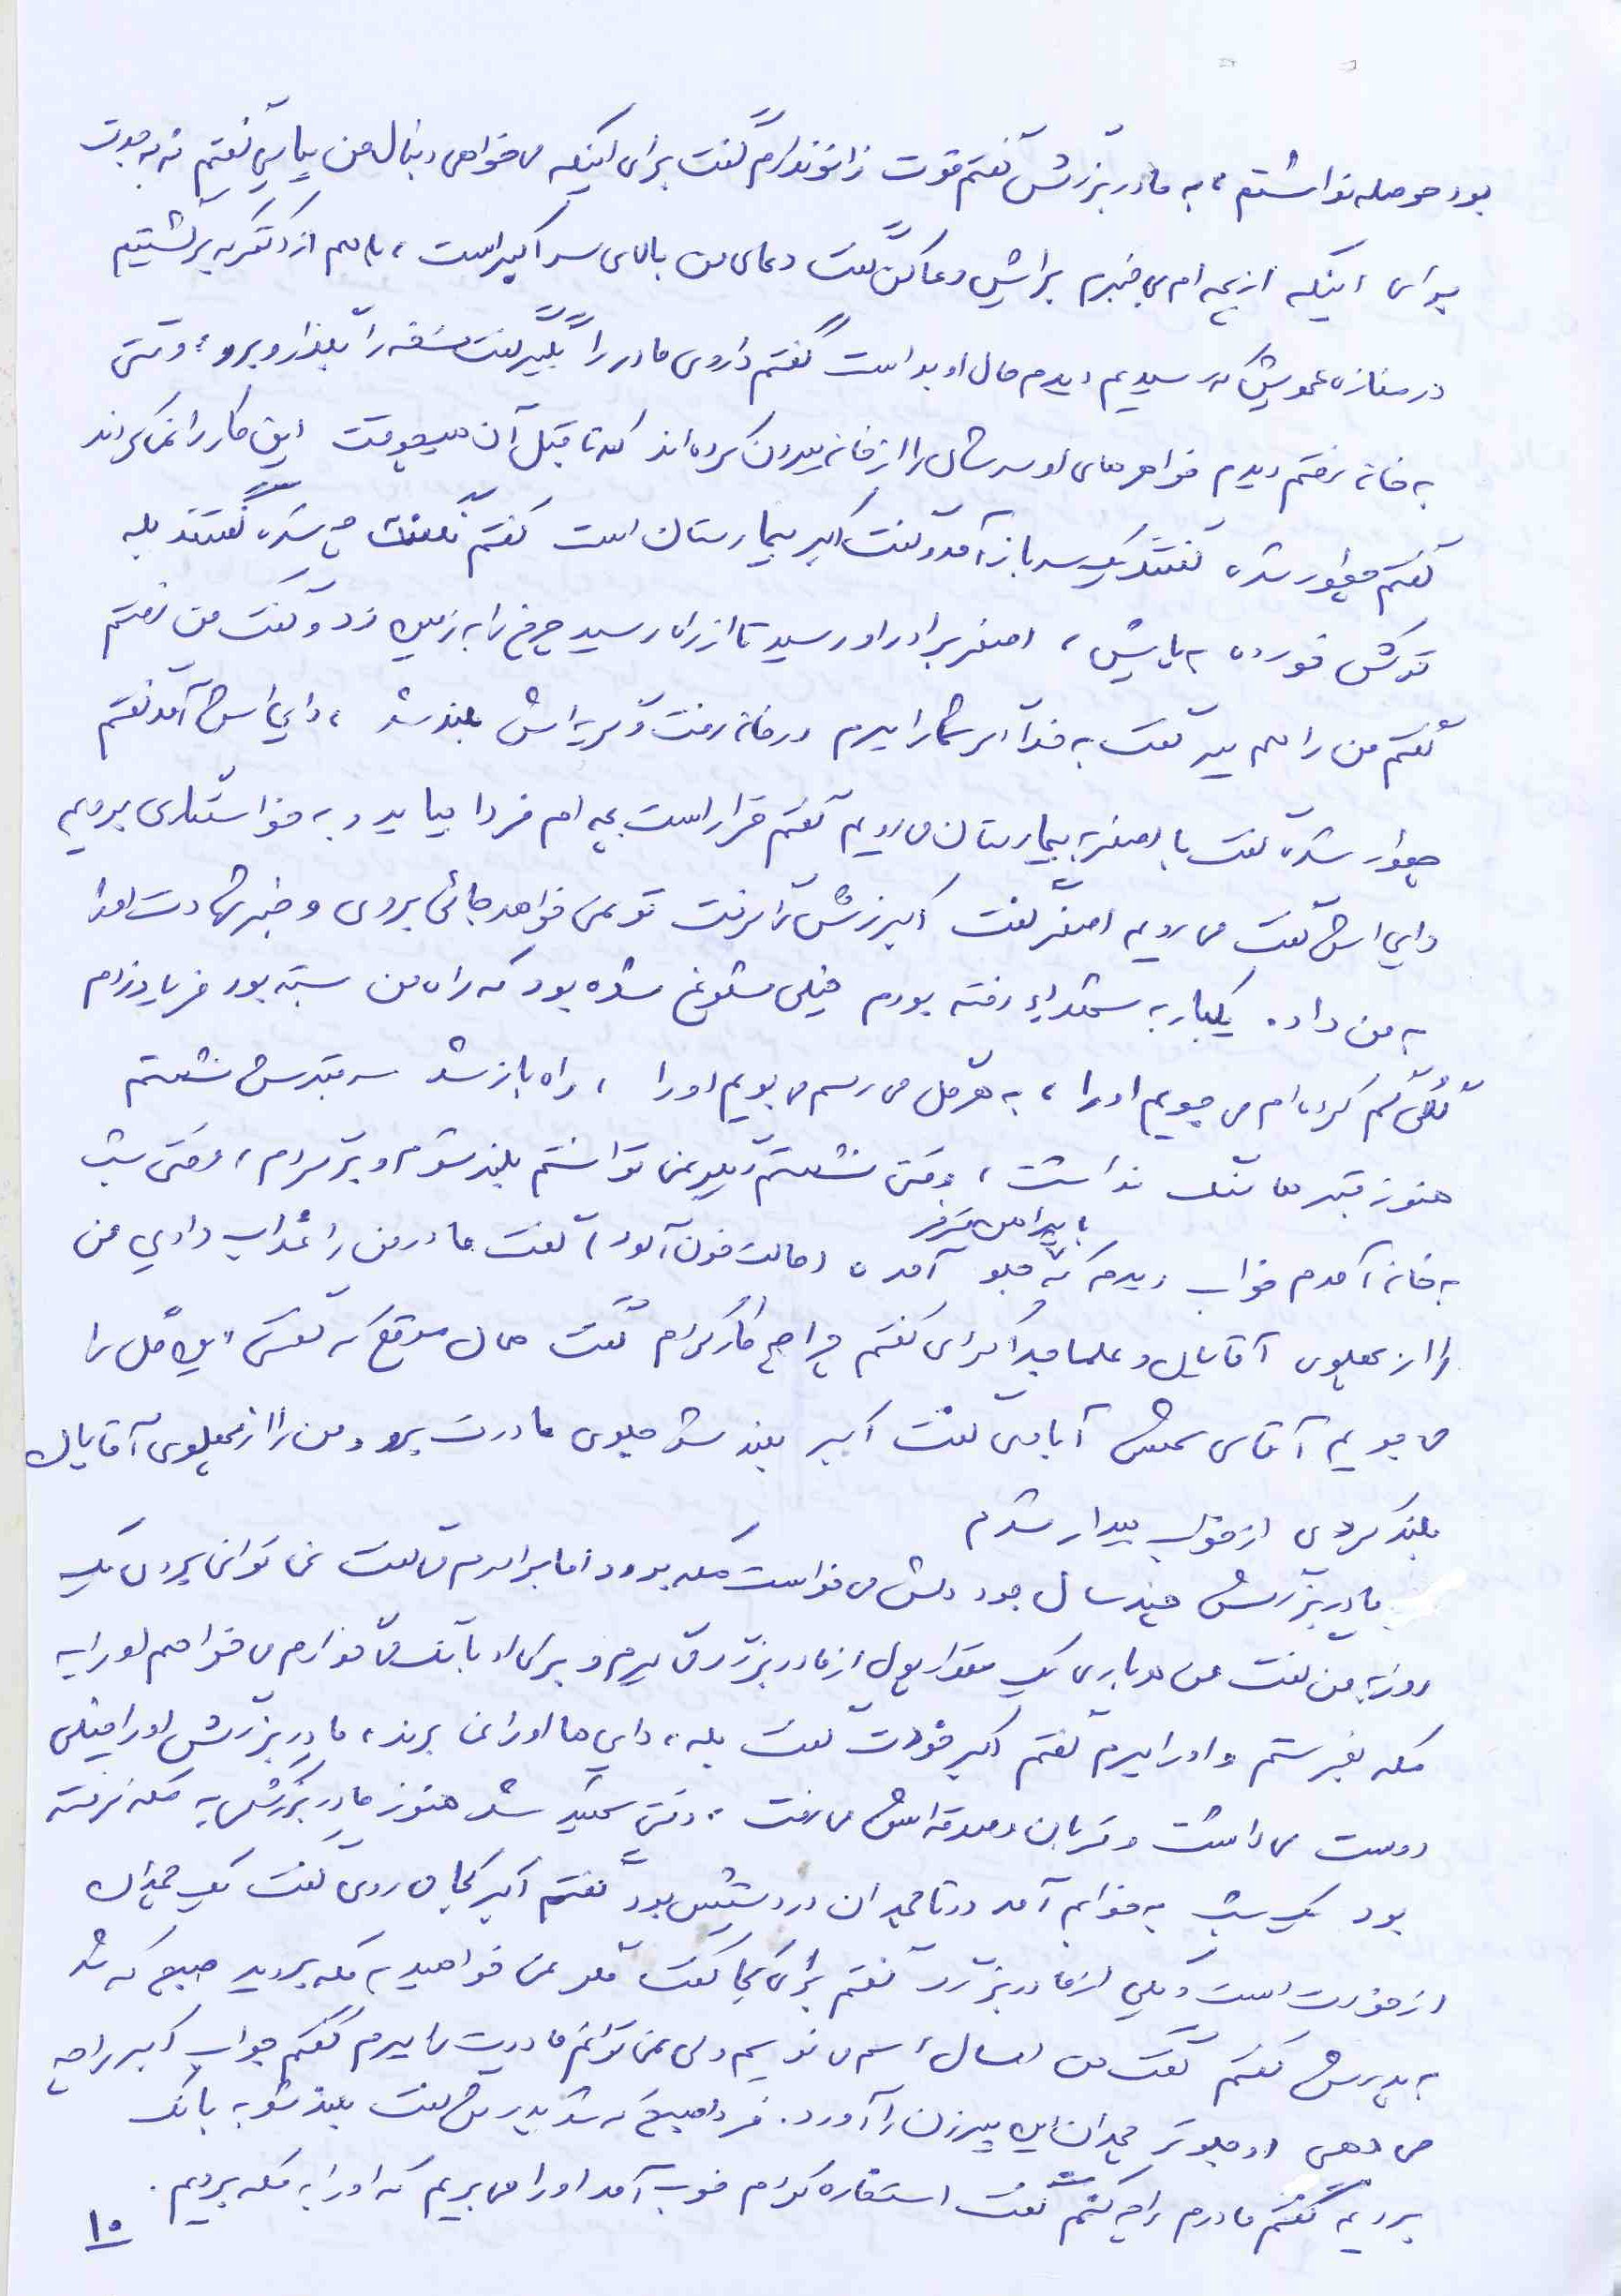 بود حوصله نداشتم، به مادر بزرگش گفتم قوت زانو ندارم گفت برای اینکه می خواهی دنبال من بیایی گفتم نه به جدت
برای اینکه از بچه ام بی خبرم برایش دعا کن گفت دعای من بالای سر اکبر است، با هم از دکتر که برگشتیم
در مغازه عمویش که رسیدیم دیدم حال او بد است گفتم داروی مادر را بگیر گفت نسخه را بگذار و برو، وقتی
به خانه رفتم دیدم خواهرهای او سرشان را از خانه بیرون کرده اند که تا قبل آن هیچوقت این کار را نمی کردند
گفتم چطور شده گفتند یک سرباز آمد و گفت اکبر بیمارستان است گفتم نگفت چی شده گفتند بله
ترکش خورده به پایش، اصغر برادر او رسید تا از راه رسید چرخ را به زمین زد و گفت من رفتم
گفتم من را هم ببر گفت به خدا اگر شما را ببرم در خانه رفت و گریه اش بلند شد، دایی اش آمد گفتم
چطور شده گفت با اصغر به بیمارستان می رویم گفتم قرار است بچه ام فردا بیاید و به خواستگاری برویم
دایی اش گفت می رویم اصغر گفت اکبر زنش را گرفت تو نمی خواهد جائی بروی و خبر شهادت او را
به من داد. یکبار به سر شهداء رفته بودم خیلی شلوغ شده بود که راه من بسته بود فریاد زدم
گلی گم کرده ام می جویم او را، به هر گل می رسم می بویم او را، راه باز شد سر قبرش نشستم
هنوز قبرها سنگ نداشت، وقتی نشستم دیگر نمی توانستم بلند شوم و برگردم، وقتی شب
به خانه آمدم خواب دیدم که جلو آمده با پیراهن قرمز (حالت خون آلود) گفت مادر من را عذاب دادی من
را از پهلوی آقایان و علما جدا کردی گفتم چرا چکار کردم گفت همان موقع که گفتی این گل را
می جویم آقای شمس آبادی گفت اکبر بلند شو جلوی مادرت برو و من را از پهلوی آقایان
بلند کردی از خواب بیدار شدم
مادر بزرگش چند سال بود دلش می خواست مکه برود اما برادرم می گفت نمی توانی بروی یک
روز به من گفت من هر باری یک مقدار پول از مادر بزرگ می گیرم و برای او بانک می گذارم می خواهم او را به
مکه بفرستم و او را ببرم گفتم اکبر خودت گفت بله، دایی ها او را نمی برند، مادر بزرگش او را خیلی
دوست می داشت و قربان صدقه اش می رفت، وقتی شهید شد هنوز مادر بزرگش به مکه نرفته
بود یک شب به خوابم آمد دو تا چمدان در دستش بود گفتم اکبر کجا می روی گفت یک چمدان
از خودت است و یکی از مادر بزرگ گفتم برای کجا گفت مگر نمی خواهید به مکه بروید صبح که شد
به پدرش گفتم گفت من امسال اسم می نویسم ولی نمی توانم مادرت را ببرم گفتم جواب اکبر را چه
می دهی او جلوتر چمدان این پیرزن را آورد. فردا صبح که شد پدرش گفت بلند شو به بانک
برویم گفتم مادرم را چه کنم گفت استخاره کردم خوب آمد او را می بریم که او را به مکه بردیم.
۱۰